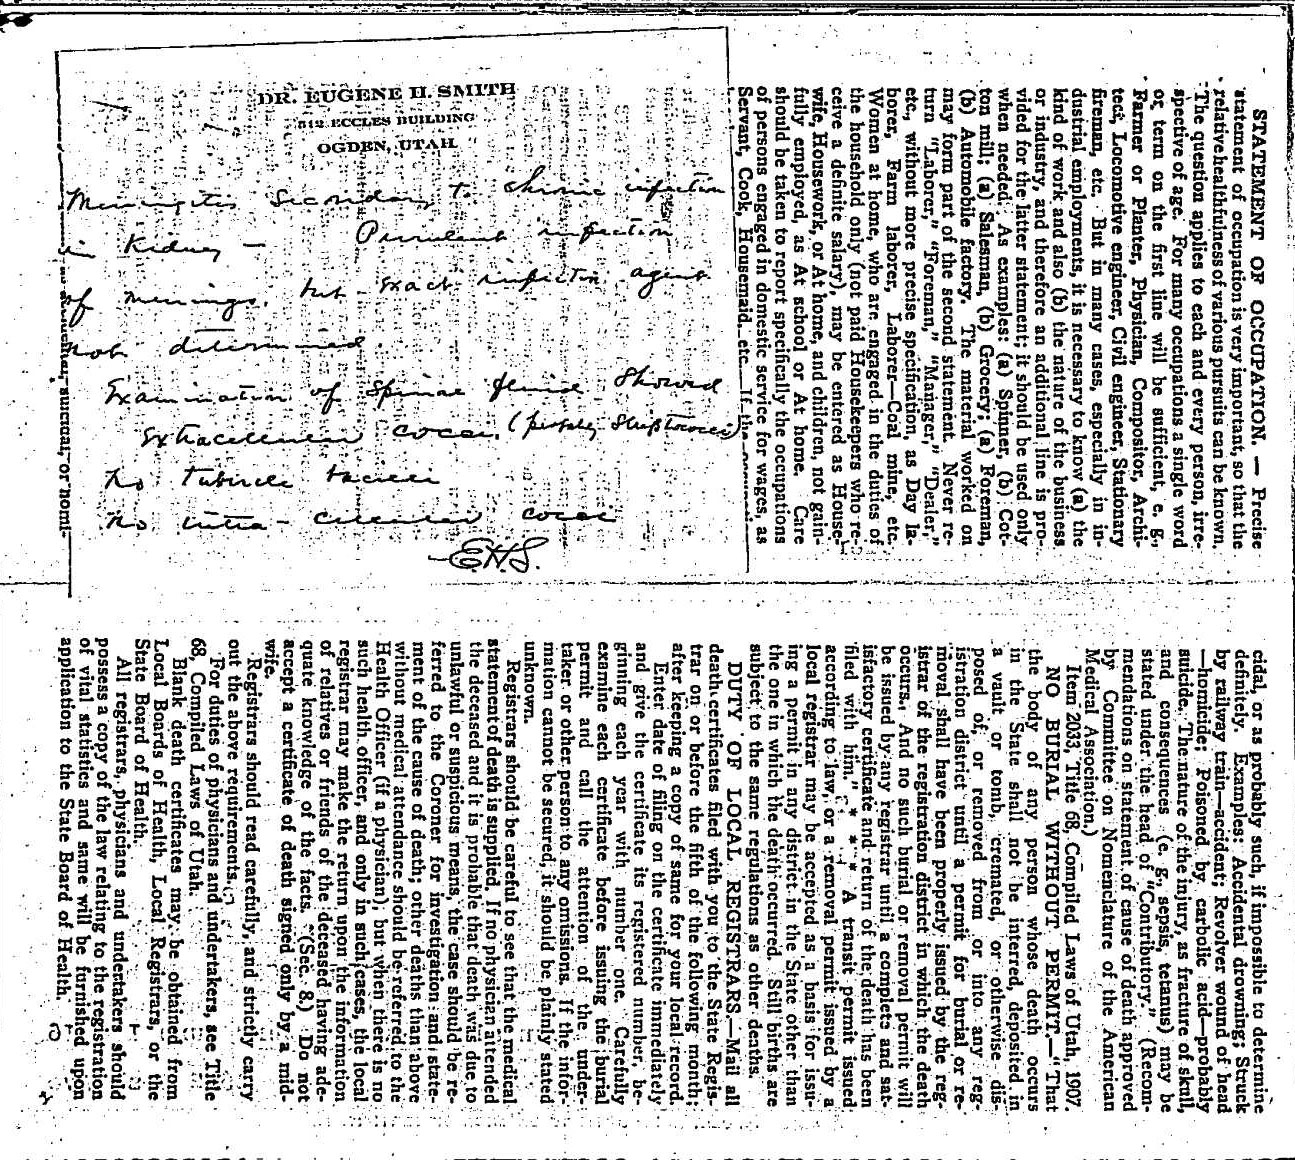 DR. EUGENE H. SMITH
512 ECCLES BUILDING
OGDEN, UTAH
Meningitis Secondary to chronic infection
in Kidney — Purulent infection
of meninges. but exact infection agent
not determined.
Examination of Spinal fluid Showed
Extracellular cocci. (probably Streptococci)
No tubercle bacilli
No intra-cellular cocci
E.H.S.
STATEMENT OF OCCUPATION. — Precise
statement of occupation is very important, so that the
relative healthfulness of various pursuits can be known.
The question applies to each and every person, irre-
spective of age. For many occupations a single word
or term on the first line will be sufficient, e. g.,
Farmer or Planter, Physician, Compositor, Archi-
tect, Locomotive engineer, Civil engineer, Stationary
fireman, etc. But in many cases, especially in in-
dustrial employments, it is necessary to know (a) the
kind of work and also (b) the nature of the business
or industry, and therefore an additional line is pro-
vided for the latter statement; it should be used only
when needed. As examples: (a) Spinner, (b) Cot-
ton mill; (a) Salesman, (b) Grocery; (a) Foreman,
(b) Automobile factory. The material worked on
may form part of the second statement. Never re-
turn "Laborer," "Foreman," "Manager," "Dealer,"
etc., without more precise specification, as Day la-
borer, Farm laborer, Laborer—Coal mine, etc.
Women at home, who are engaged in the duties of
the household only (not paid Housekeepers who re-
ceive a definite salary), may be entered as House-
wife, Housework, or At home, and children, not gain-
fully employed, as At school or At home. Care
should be taken to report specifically the occupations
of persons engaged in domestic service for wages, as
Servant, Cook, Housemaid, etc. If the
suicidal, or homi-
cidal, or as probably such, if impossible to determine
definitely. Examples: Accidental drowning; Struck
by railway train—accident; Revolver wound of head
—homicide; Poisoned by carbolic acid—probably
suicide. The nature of the injury, as fracture of skull,
and consequences (e. g., sepsis, tetanus) may be
stated under the head of "Contributory." (Recom-
mendations on statement of cause of death approved
by Committee on Nomenclature of the American
Medical Association.)
Item 2033, Title 68, Compiled Laws of Utah, 1907.
NO BURIAL WITHOUT PERMIT.—"That
the body of any person whose death occurs
in the State shall not be interred, deposited in
a vault or tomb, cremated, or otherwise dis-
posed of, or removed from or into any reg-
istration district until a permit for burial or re-
moval shall have been properly issued by the reg-
istrar of the registration district in which the death
occurs. And no such burial or removal permit will
be issued by any registrar until a complete and sat-
isfactory certificate and return of the death has been
filed with him." * * * A transit permit issued
according to law, or a removal permit issued by a
local registrar may be accepted as a basis for issu-
ing a permit in any district in the State other than
the one in which the death occurred. Still births are
subject to the same regulations as other deaths.
DUTY OF LOCAL REGISTRARS—Mail all
death certificates filed with you to the State Regis-
trar on or before the fifth of the following month;
after keeping a copy of same for your local record.
Enter date of filing on the certificate immediately
and give the certificate its registered number, be-
ginning each year with number one. Carefully
examine each certificate before issuing the burial
permit and call the attention of the under-
taker or other person to any omissions. If the infor-
mation cannot be secured, it should be plainly stated
unknown.
Registrars should be careful to see that the medical
statement of death is supplied. If no physician attended
the deceased and it is probable that death was due to
unlawful or suspicious means, the case should be re-
ferred to the Coroner for investigation and state-
ment of the cause of death; other deaths than above
without medical attendance should be referred to the
Health Officer (if a physician), but when there is no
such health officer, and only in such cases, the local
registrar may make the return upon the information
of relatives or friends of the deceased having ade-
quate knowledge of the facts. (Sec. 8.) Do not
accept a certificate of death signed only by a mid-
wife.
Registrars should read carefully, and strictly carry
out the above requirements.
For duties of physicians and undertakers, see Title
68, Compiled Laws of Utah.
Blank death certificates may be obtained from
Local Boards of Health, Local Registrars, or the
State Board of Health.
All registrars, physicians and undertakers should
possess a copy of the law relating to the registration
of vital statistics and same will be furnished upon
application to the State Board of Health.